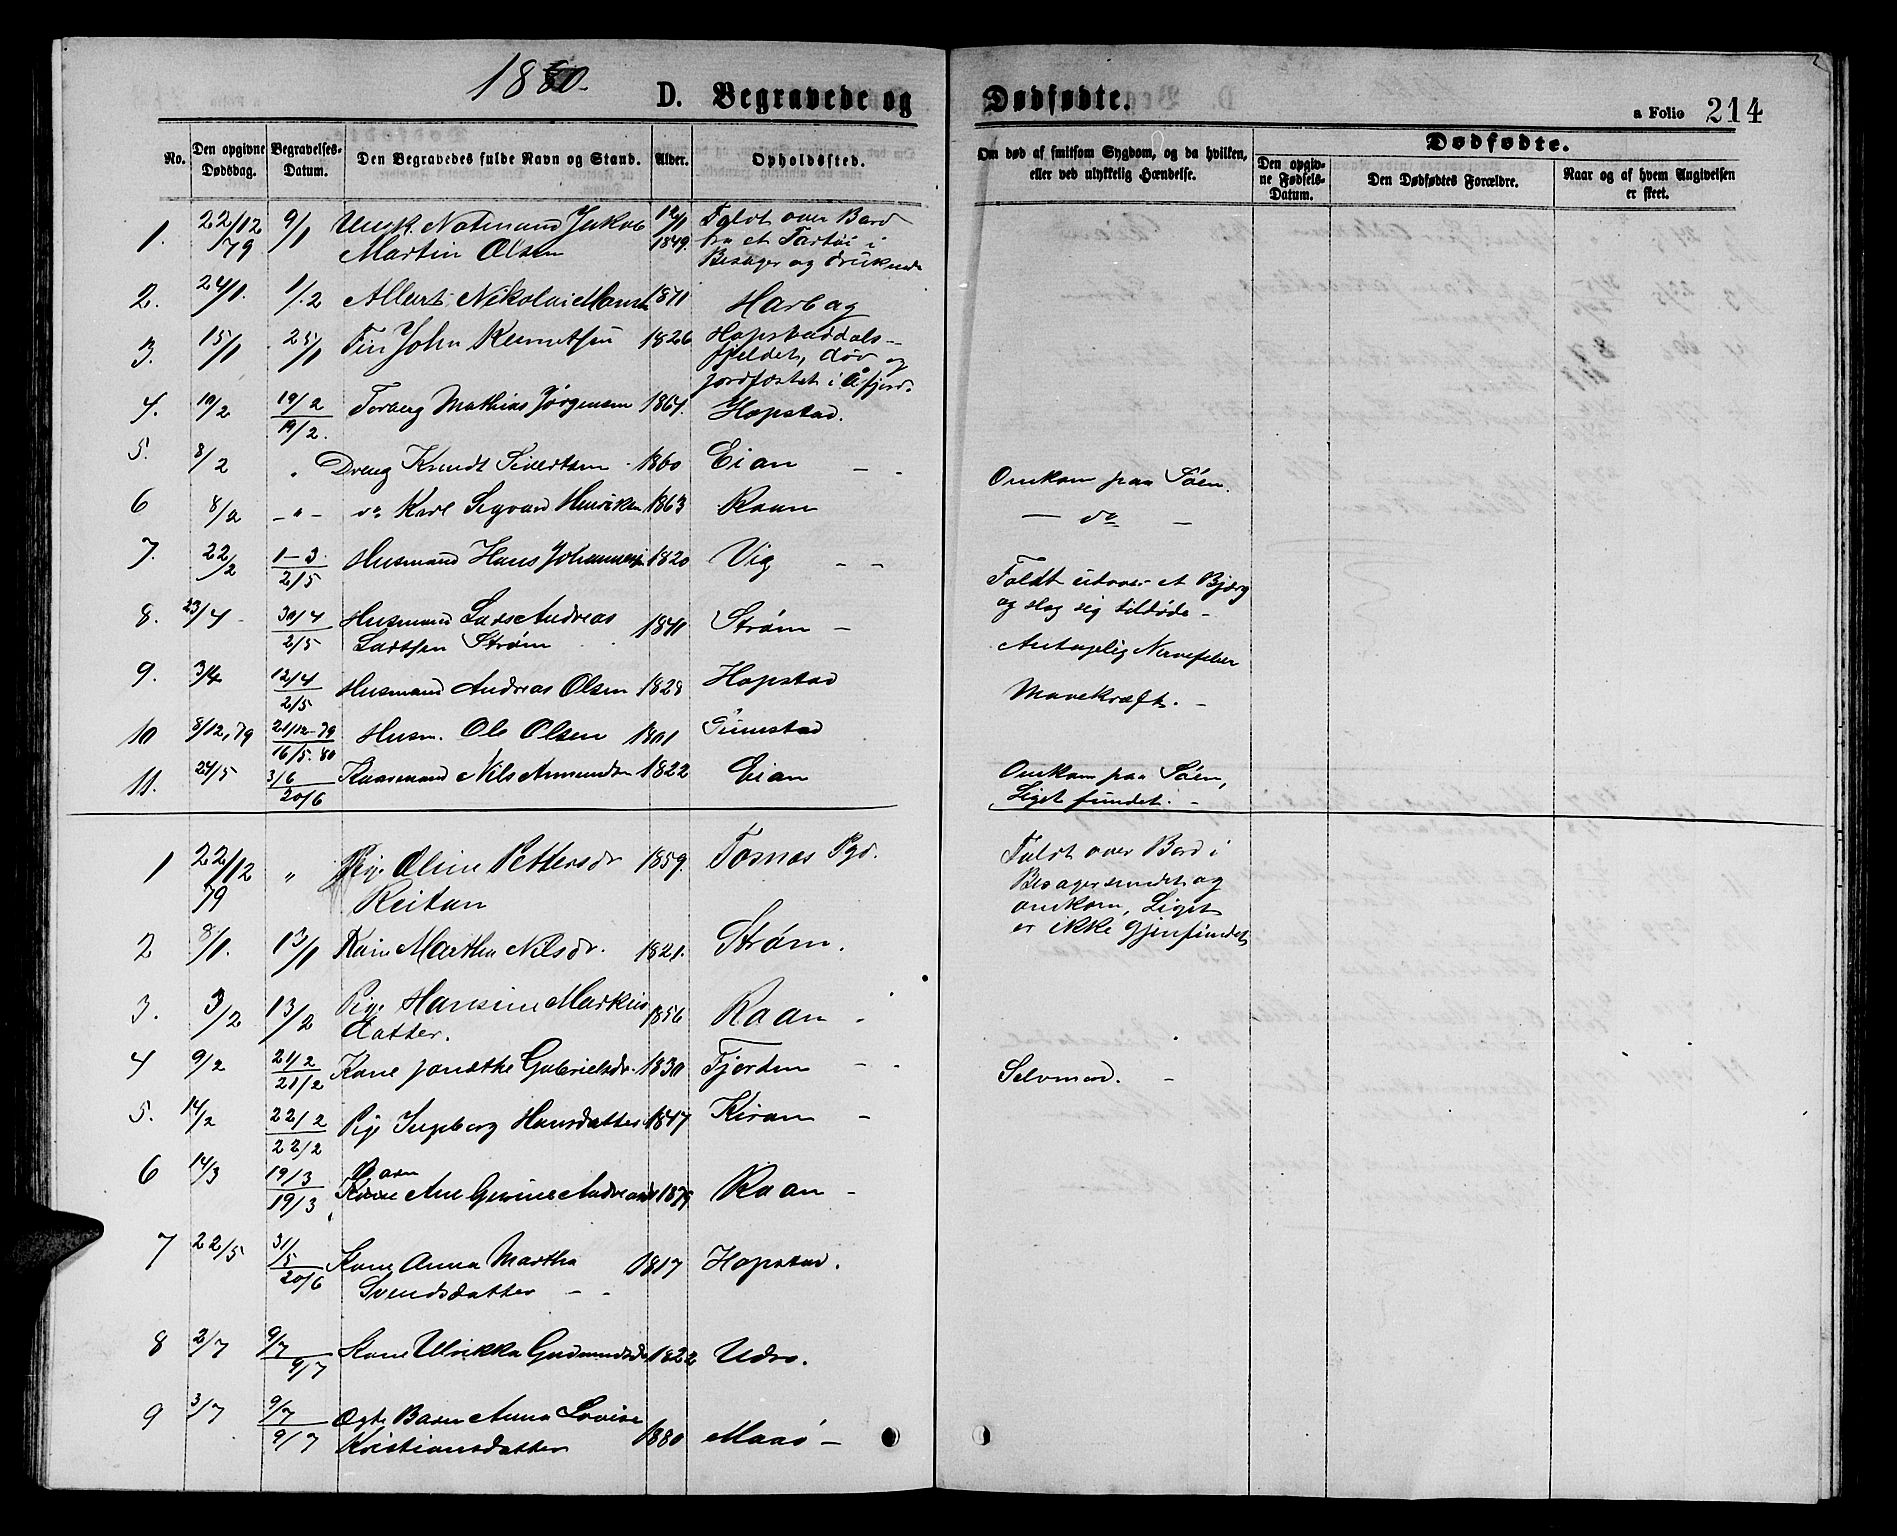 1880.
D. Begravede og Dødfødte.
a Folio 214
No.
Den opgivne Dødsdag.
Begravelses-Datum.
Den Begravedes fulde Navn og Stand.
Alder.
Opholdssted.
Om død af smitsom Sygdom, og da hvilken, eller ved ulykkelig Hændelse.
Dødfødte.
Den opgivne Fødsels-Datum.
Den Dødfødtes Forældre.
Naar og af hvem Angivelsen er skeet.
1. 22/12 79 9/1 Ungk. Notmand Jakob Martin Olsen 12/1 1849. Faldt over Bord fra et Fartøi i Besager og druknede
2. 24/1. 1/2 Albert Nikolai 1871 Harbag
3. 15/1 25/1 Fin John 1826 Hopstaddals-fjeldet, død og jordfæstet i Åfjord.
4. 10/2 19/2 19/2. Torberg Mathias Jørgensen 1867. Hopstad.
5. 8/2 " Dreng Knudt Sivertsen 1860 Eian - - Omkom paa Søen.
6 8/2 -"- do Karl Sigvard Henriksen 1863 Raan - do -
7. 22/2 1-3 2/5 Husmand Hans Johannesen 1820 Vig - - Faldt udover et Bjærg og slog sig tildøde -
8. 23/4 - 30/4 2/5 Husmand Lars Andreas Larssen Strøm 1841 Strøm - Antagelig Nervefeber
9. 3/4 12/4 2/5 Husmand Andreas Olsen 1828 Hopstad Mavekræft. -
10 8/12, 79 21/12-79 16/5. 80 Husm. Ole Olsen 1801
11. 24/5 3/6 20/6 Kaarmand Nils Amundsen 1822 Eian Omkom paa Søen, Liget fundet. -
1 22/12 79 " Pige Oline Pettersdr Reitan 1859. Fosnæs Pgd. Faldt over Bord i Besagersundet og omkom, Liget er ikke gjenfundet
2 8/1. 13/1 Kone Martha Nilsdr. 1821. Strøm.
3. 3/2 13/2 Pige Hansine Markus datter. 1856 Raan -
4 9/2 21/2 21/2 Kone Janetke Gabrielsdr. 1830 Fjorden - - Selvmord. -
5. 14/2 22/2 22/2 Pige Ingeborg Hansdatter 1847 Kiran -
6 14/3 19/3 19/3 Barn Kone Ane Gurine Andreasdr 1879 Raan -
7 22/5 31/5 20/6 Kone Anna Martha Svendsdatter - - 1817 Hopstad.
8 2/7 9/7 9/7 Kone Ulrikka Gudmundsdr 1822 Udro.
9 3/7 9/7 9/7 Ægte Barn Anna Lovise Kristiansdatter 1880 Maaø -